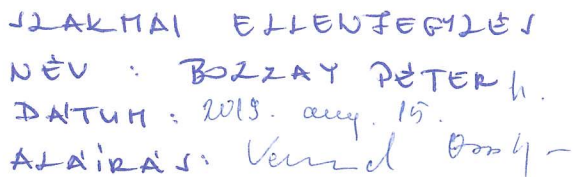 SZAKMAI ELLENJEGYZÉS
NÉV : BOZZAY PÉTER h.
DÁTUM : 2019. aug. 15.
ALÁÍRÁS: